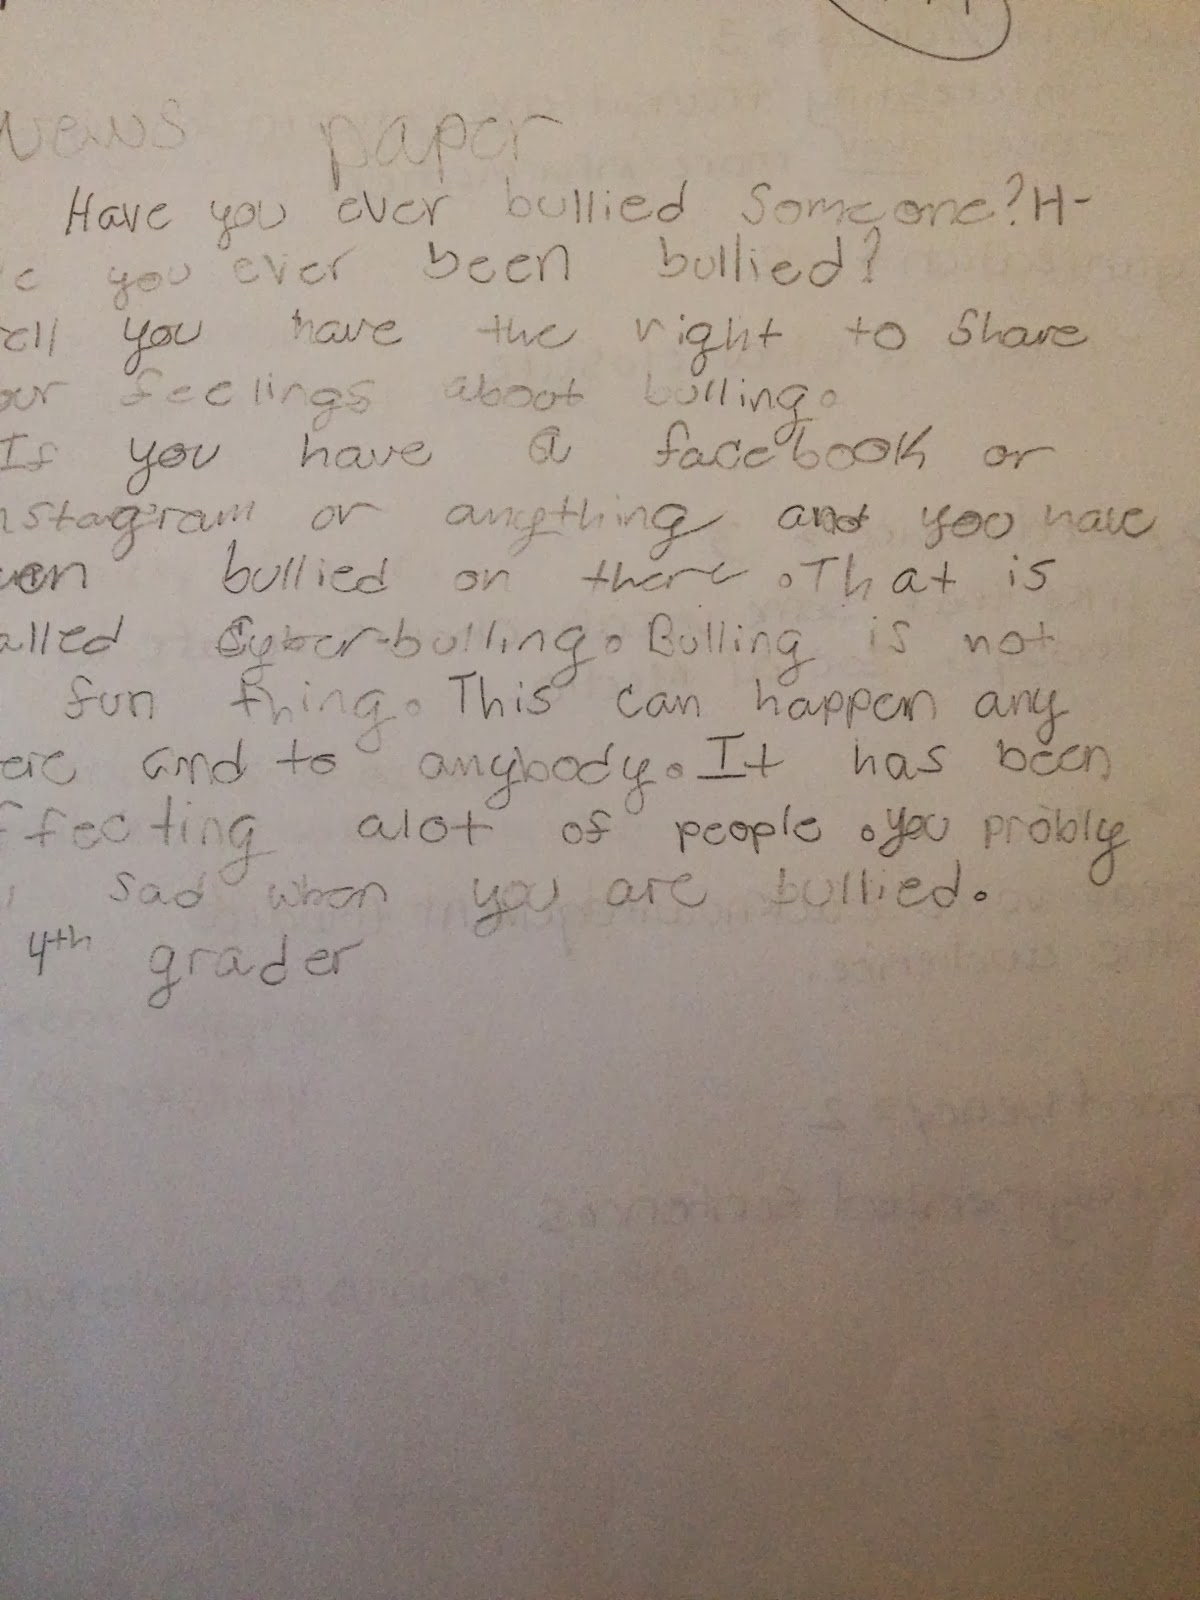 News paper
Have you ever bullied Someone? H-
e you ever been bullied?
ell you have the right to Share
our feelings about bulling.
If you have a facebook or
nstagram or anything and you have
bullied on there. That is
alled Cyber-bulling. Bulling is not
fun thing. This can happen any
ere and to anybody. It has been
ffecting alot of people. you probly
sad when you are bullied.
4th grader